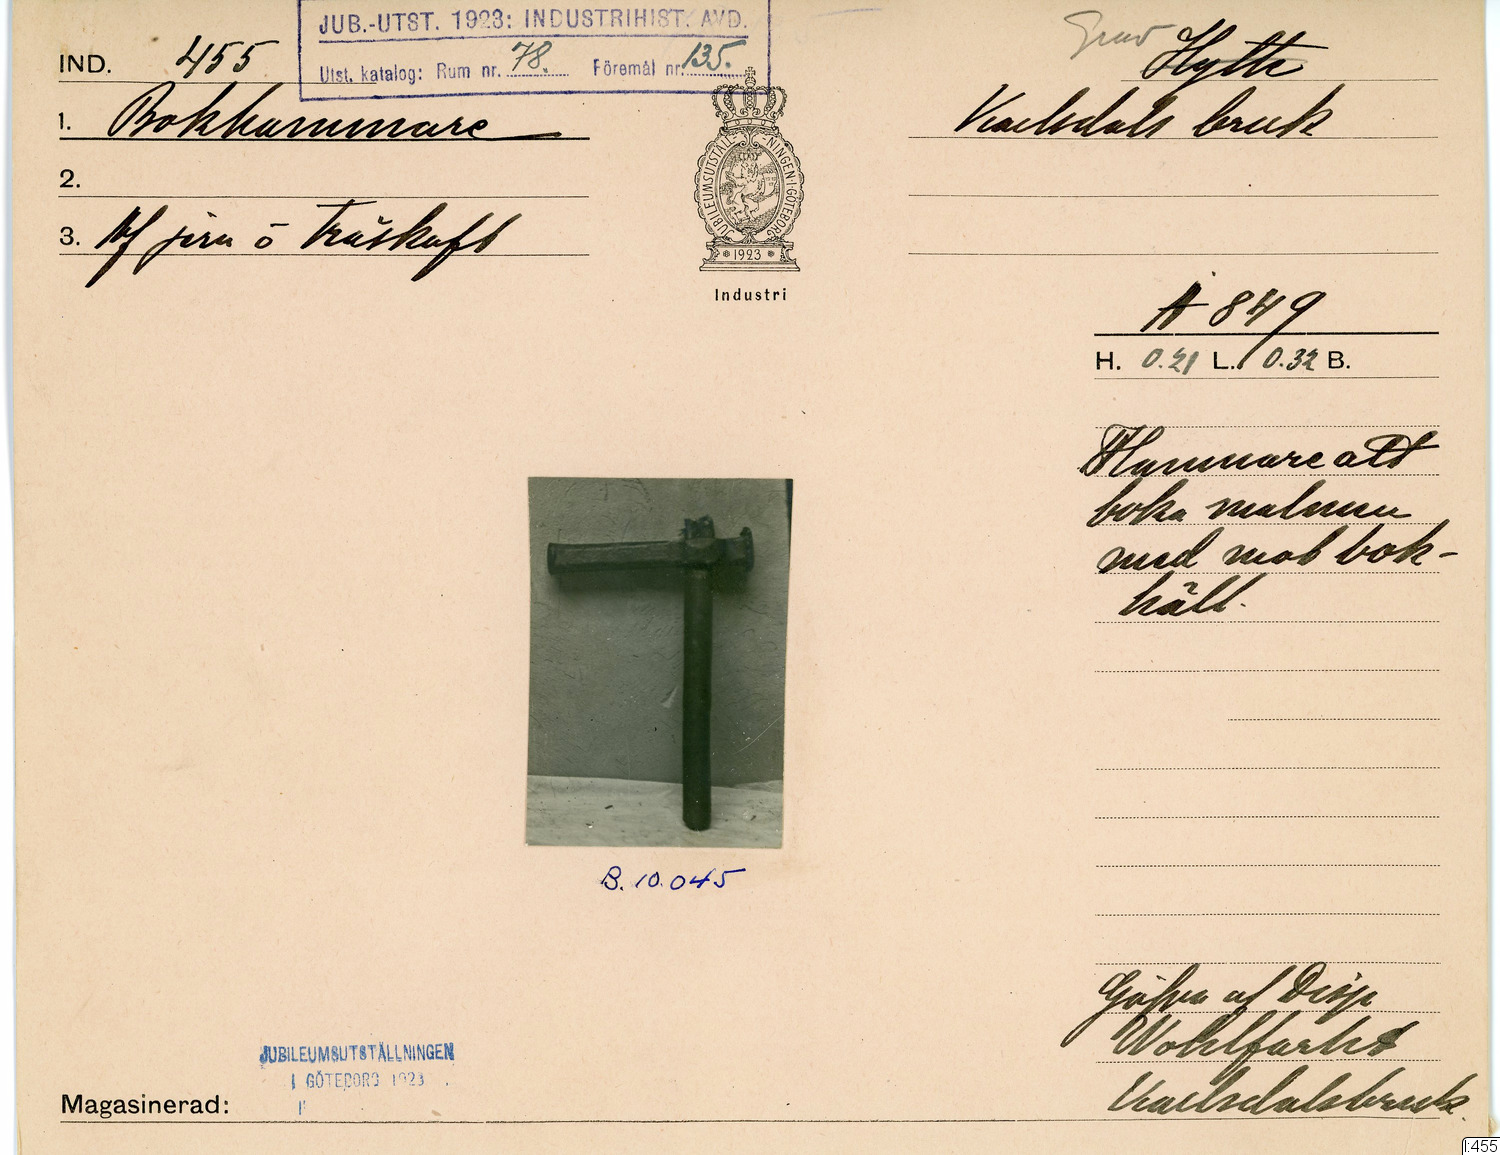 JUB.-UTST. 1923: INDUSTRIHIST. AVD.
Utst. katalog: Rum nr. 78. Föremål nr. 135.
IND. 455
1. Bokhammare
2.
3. Af jern o Träskaft
JUBILEUMSUTSTÄLLNINGEN·I·GÖTEBORG
1923
Industri
Gruv Hytte
Karlsdals bruk
A 849
H. 0.21 L. 0.32 B.
Hammare att
boka malmen
med mot bok-
häll.
B. 10.045
Gåfva af Disp
Wohlfarht
Karlsdalsbruk.
JUBILEUMSUTSTÄLLNINGEN
I GÖTEBORG 1923
Magasinerad:
I:455